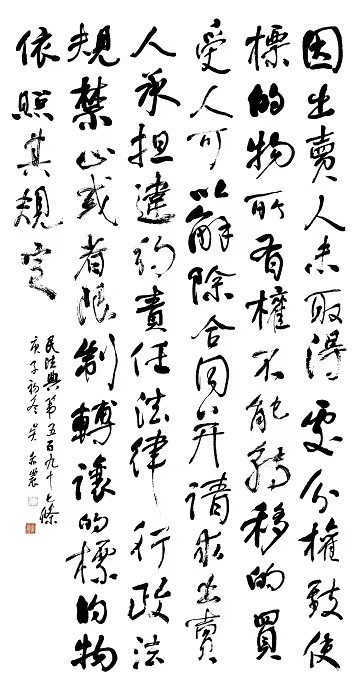 因出賣人未取得處分權致使
標的物所有權不能轉移的買
受人可以解除合同并請求出賣
人承担違約責任法律行政法
規禁止或者限制轉讓的標的物
依照其規定
民法典第五百九十七條
庚子初冬吴